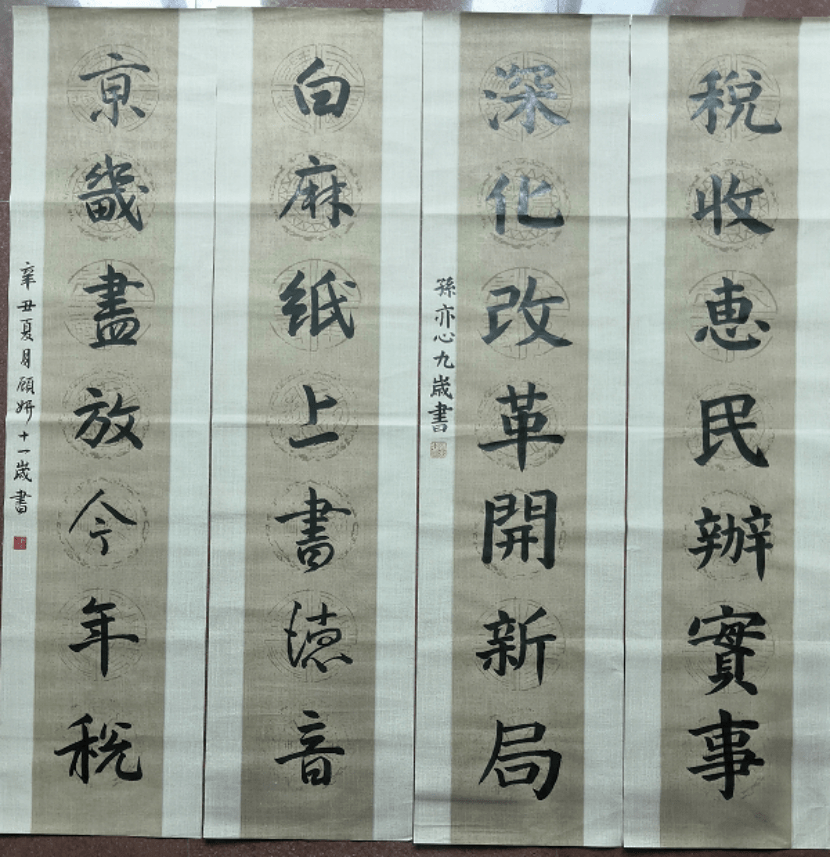 税收惠民辦實事
深化改革開新局
孫亦心九歲書
白麻紙上書德音
京畿盡放今年税
辛丑夏月顧妍十一歲書